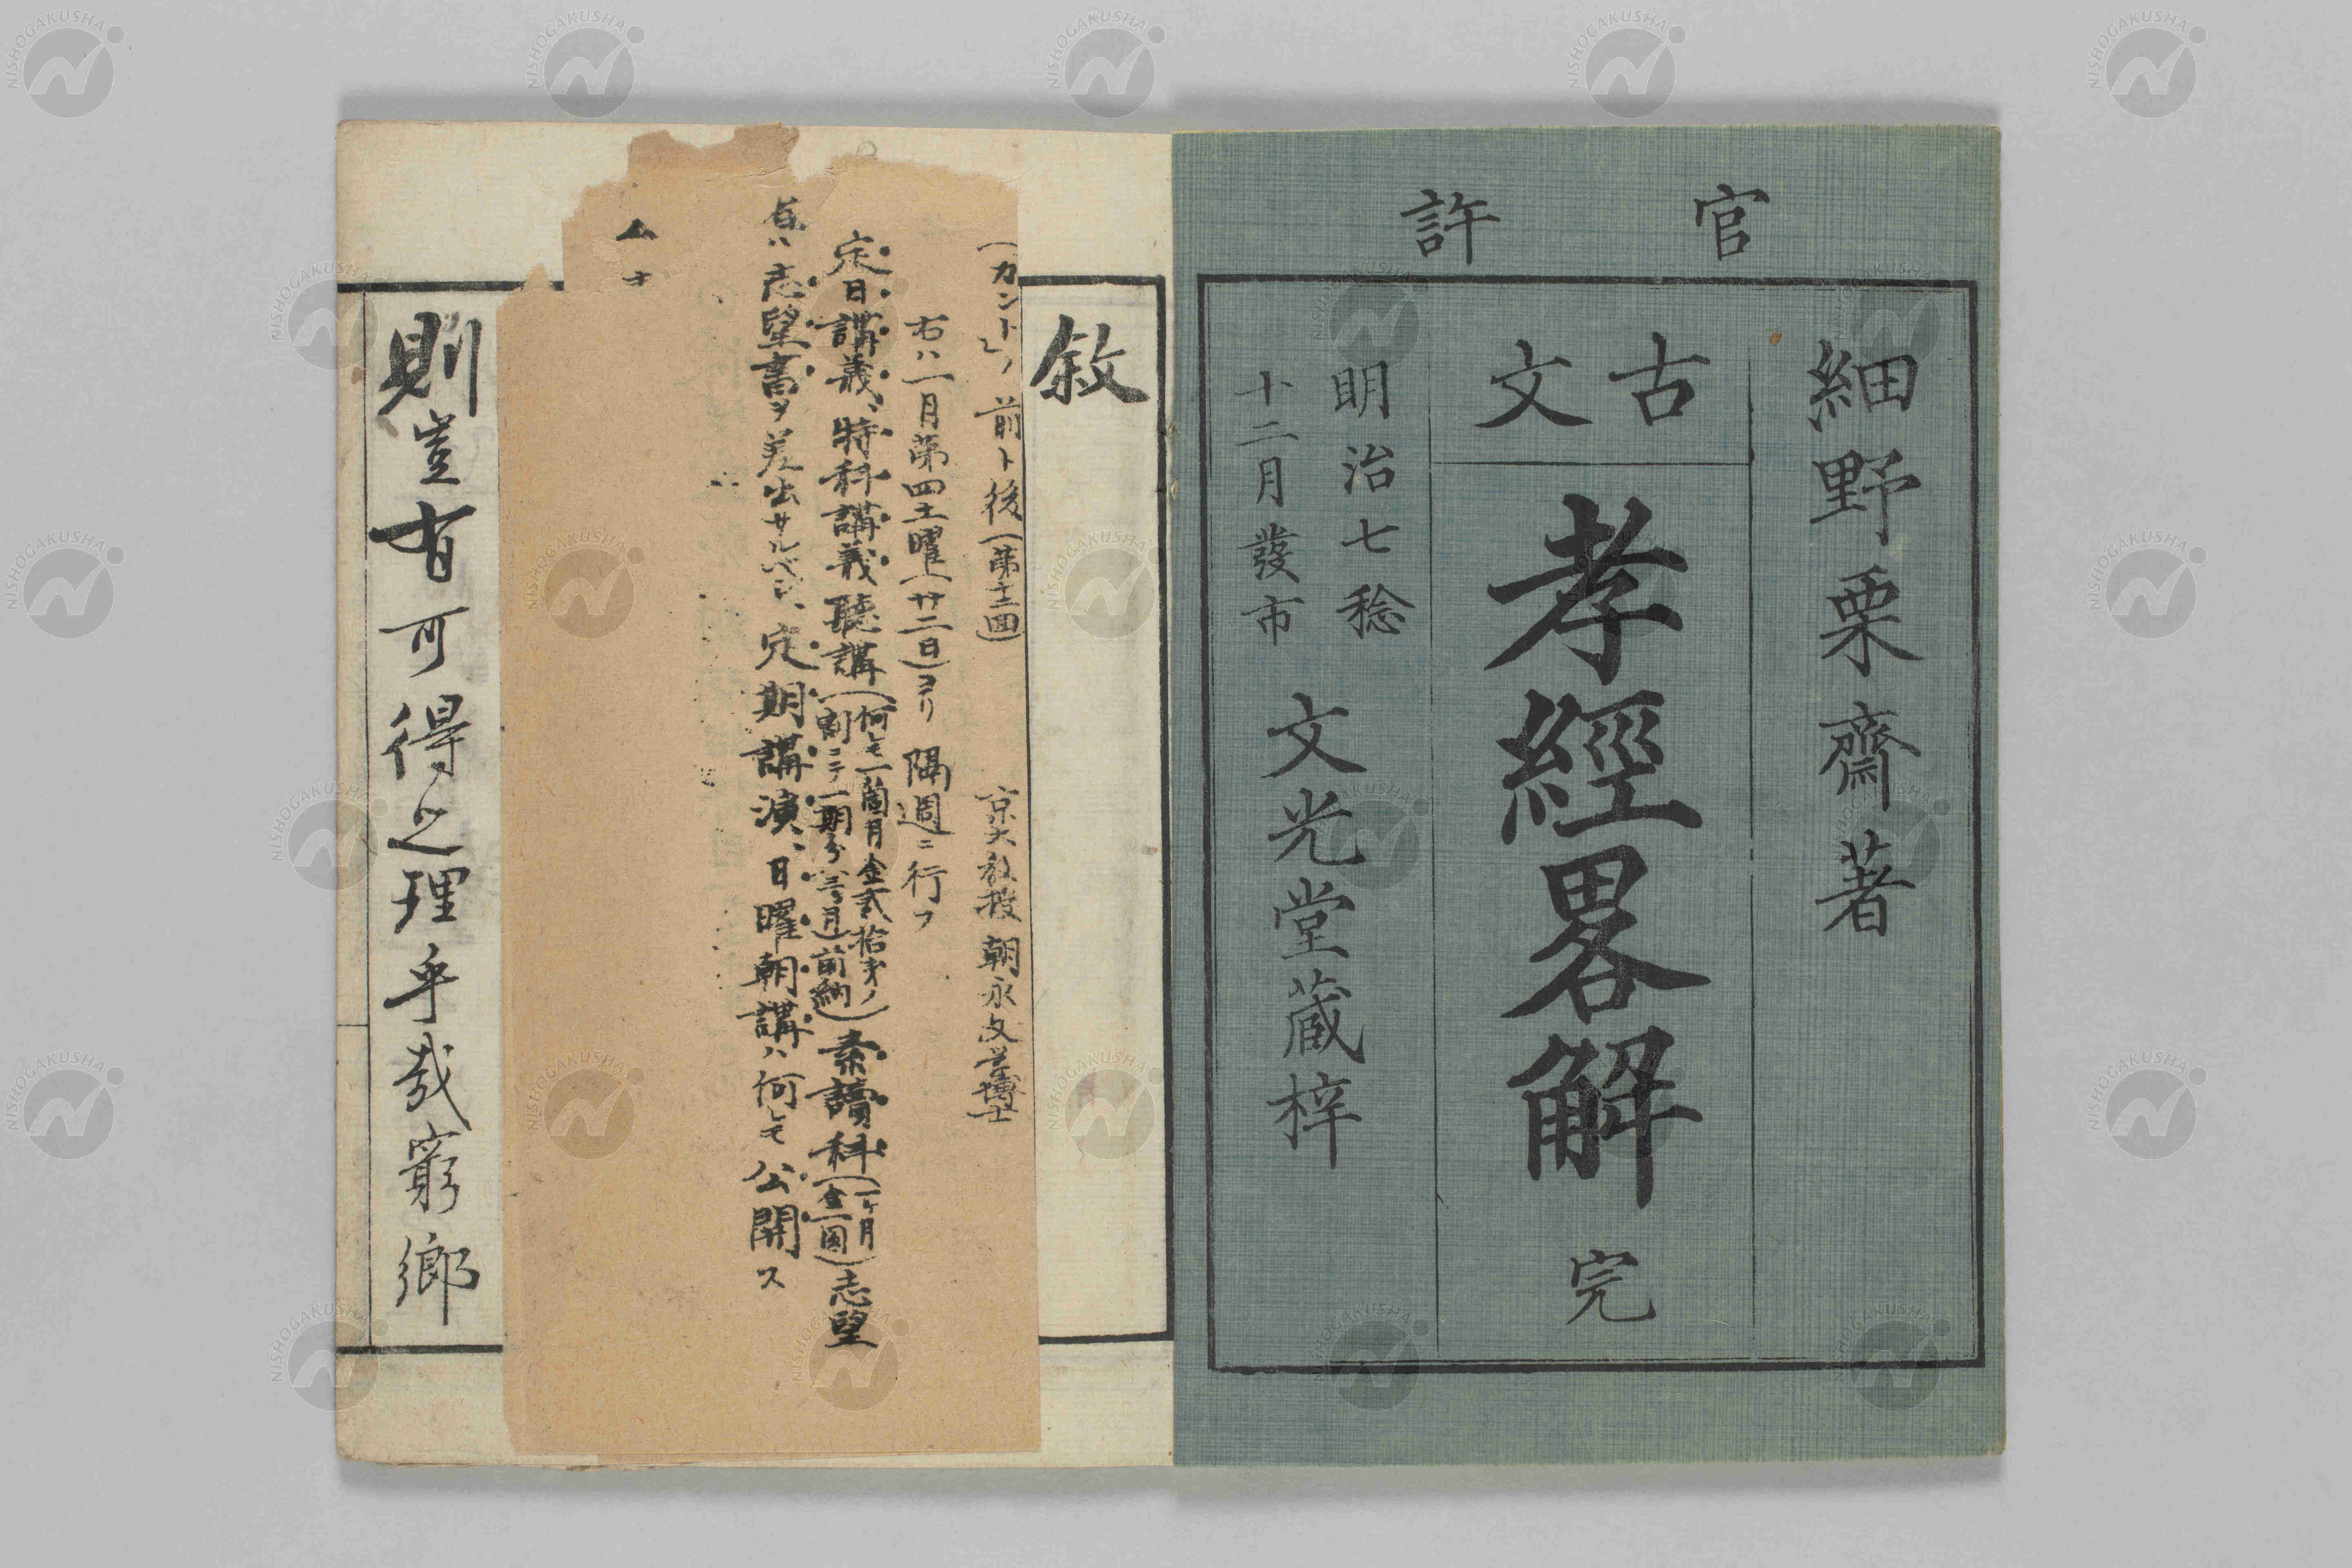 官許
細野栗齋著
古文
孝經畧解 完
明治七稔
十二月發市
文光堂蔵梓
敘
(カントノ前ト後(第十二回) 京大教授 朝永文学博士
右ハ一月第四土曜(廿二日)ヨリ 隔週ニ行フ
定日講義、特科講義聽講(何レモ一箇月金貳拾
割ニテ一期分 月)前納)素讀科(一ヶ月
金一圓)志望
者ハ志望書ヲ差出サルベシ、定期講演、日曜朝講ハ何レモ公開ス
則豈有可得之理乎哉窮鄉
NISHOGAKUSHA